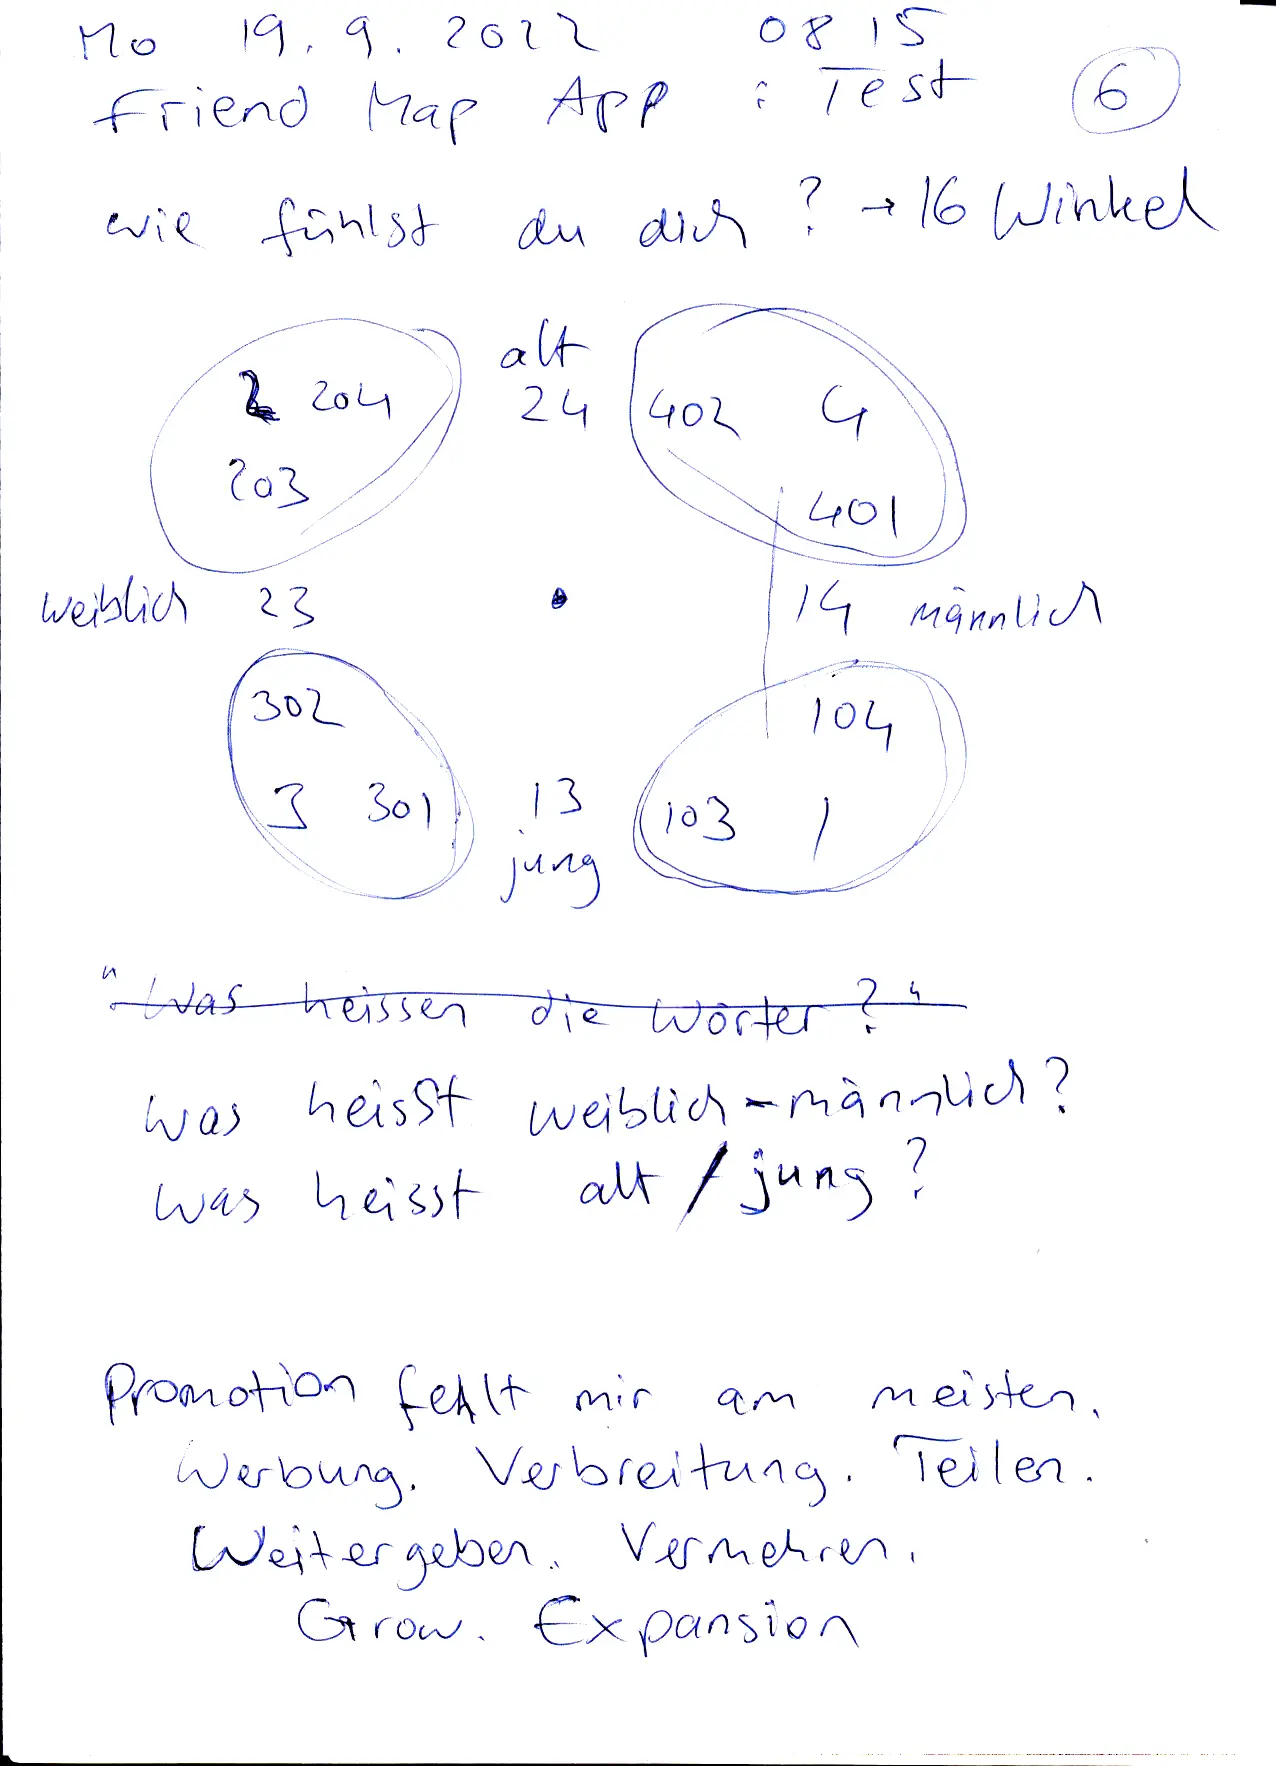 Mo 19.9.2022 0815
Friend Map App : Test 6
wie fühlst du dich? → 16 Winkel
alt
2 204 24 402 4
203 401
weiblich 23 14 männlich
302 104
3 301 13 103 1
jung
"Was heissen die Wörter?"
Was heisst weiblich-männlich?
Was heisst alt / jung?
Promotion fehlt mir am meisten.
Werbung. Verbreitung. Teilen.
Weitergeben. Vermehren.
Grow. Expansion